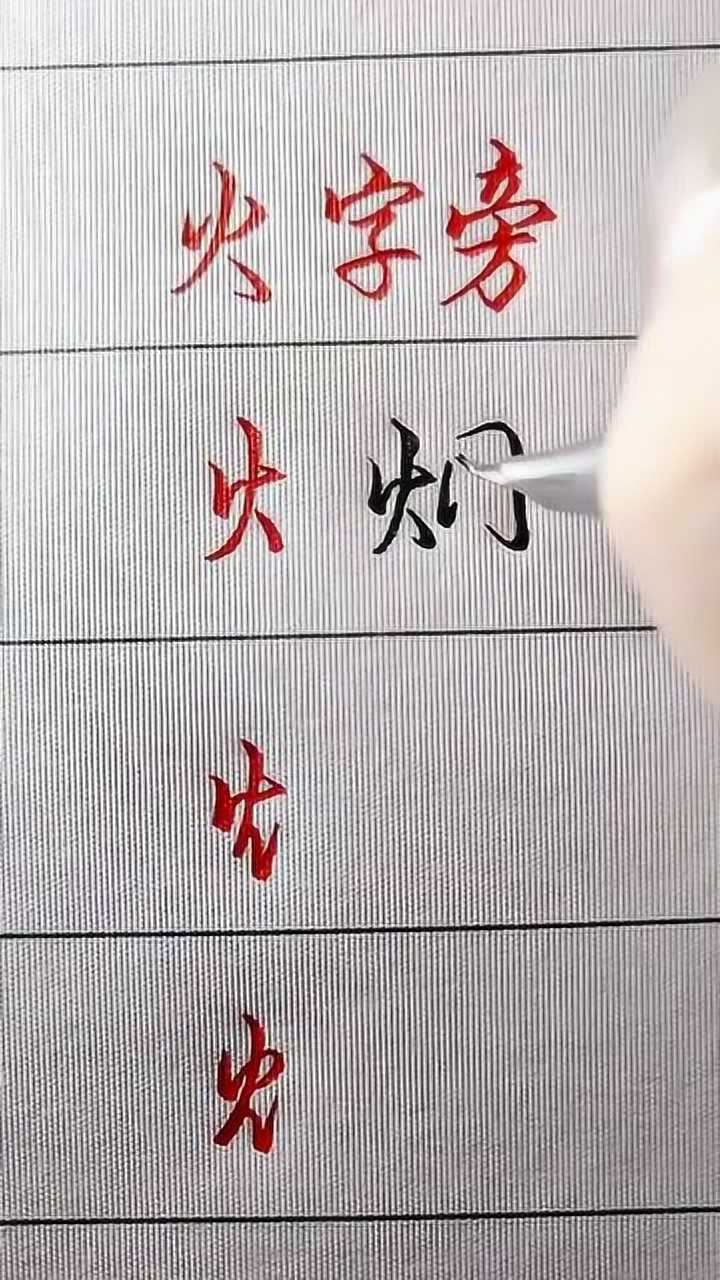 火字旁
火
火
火